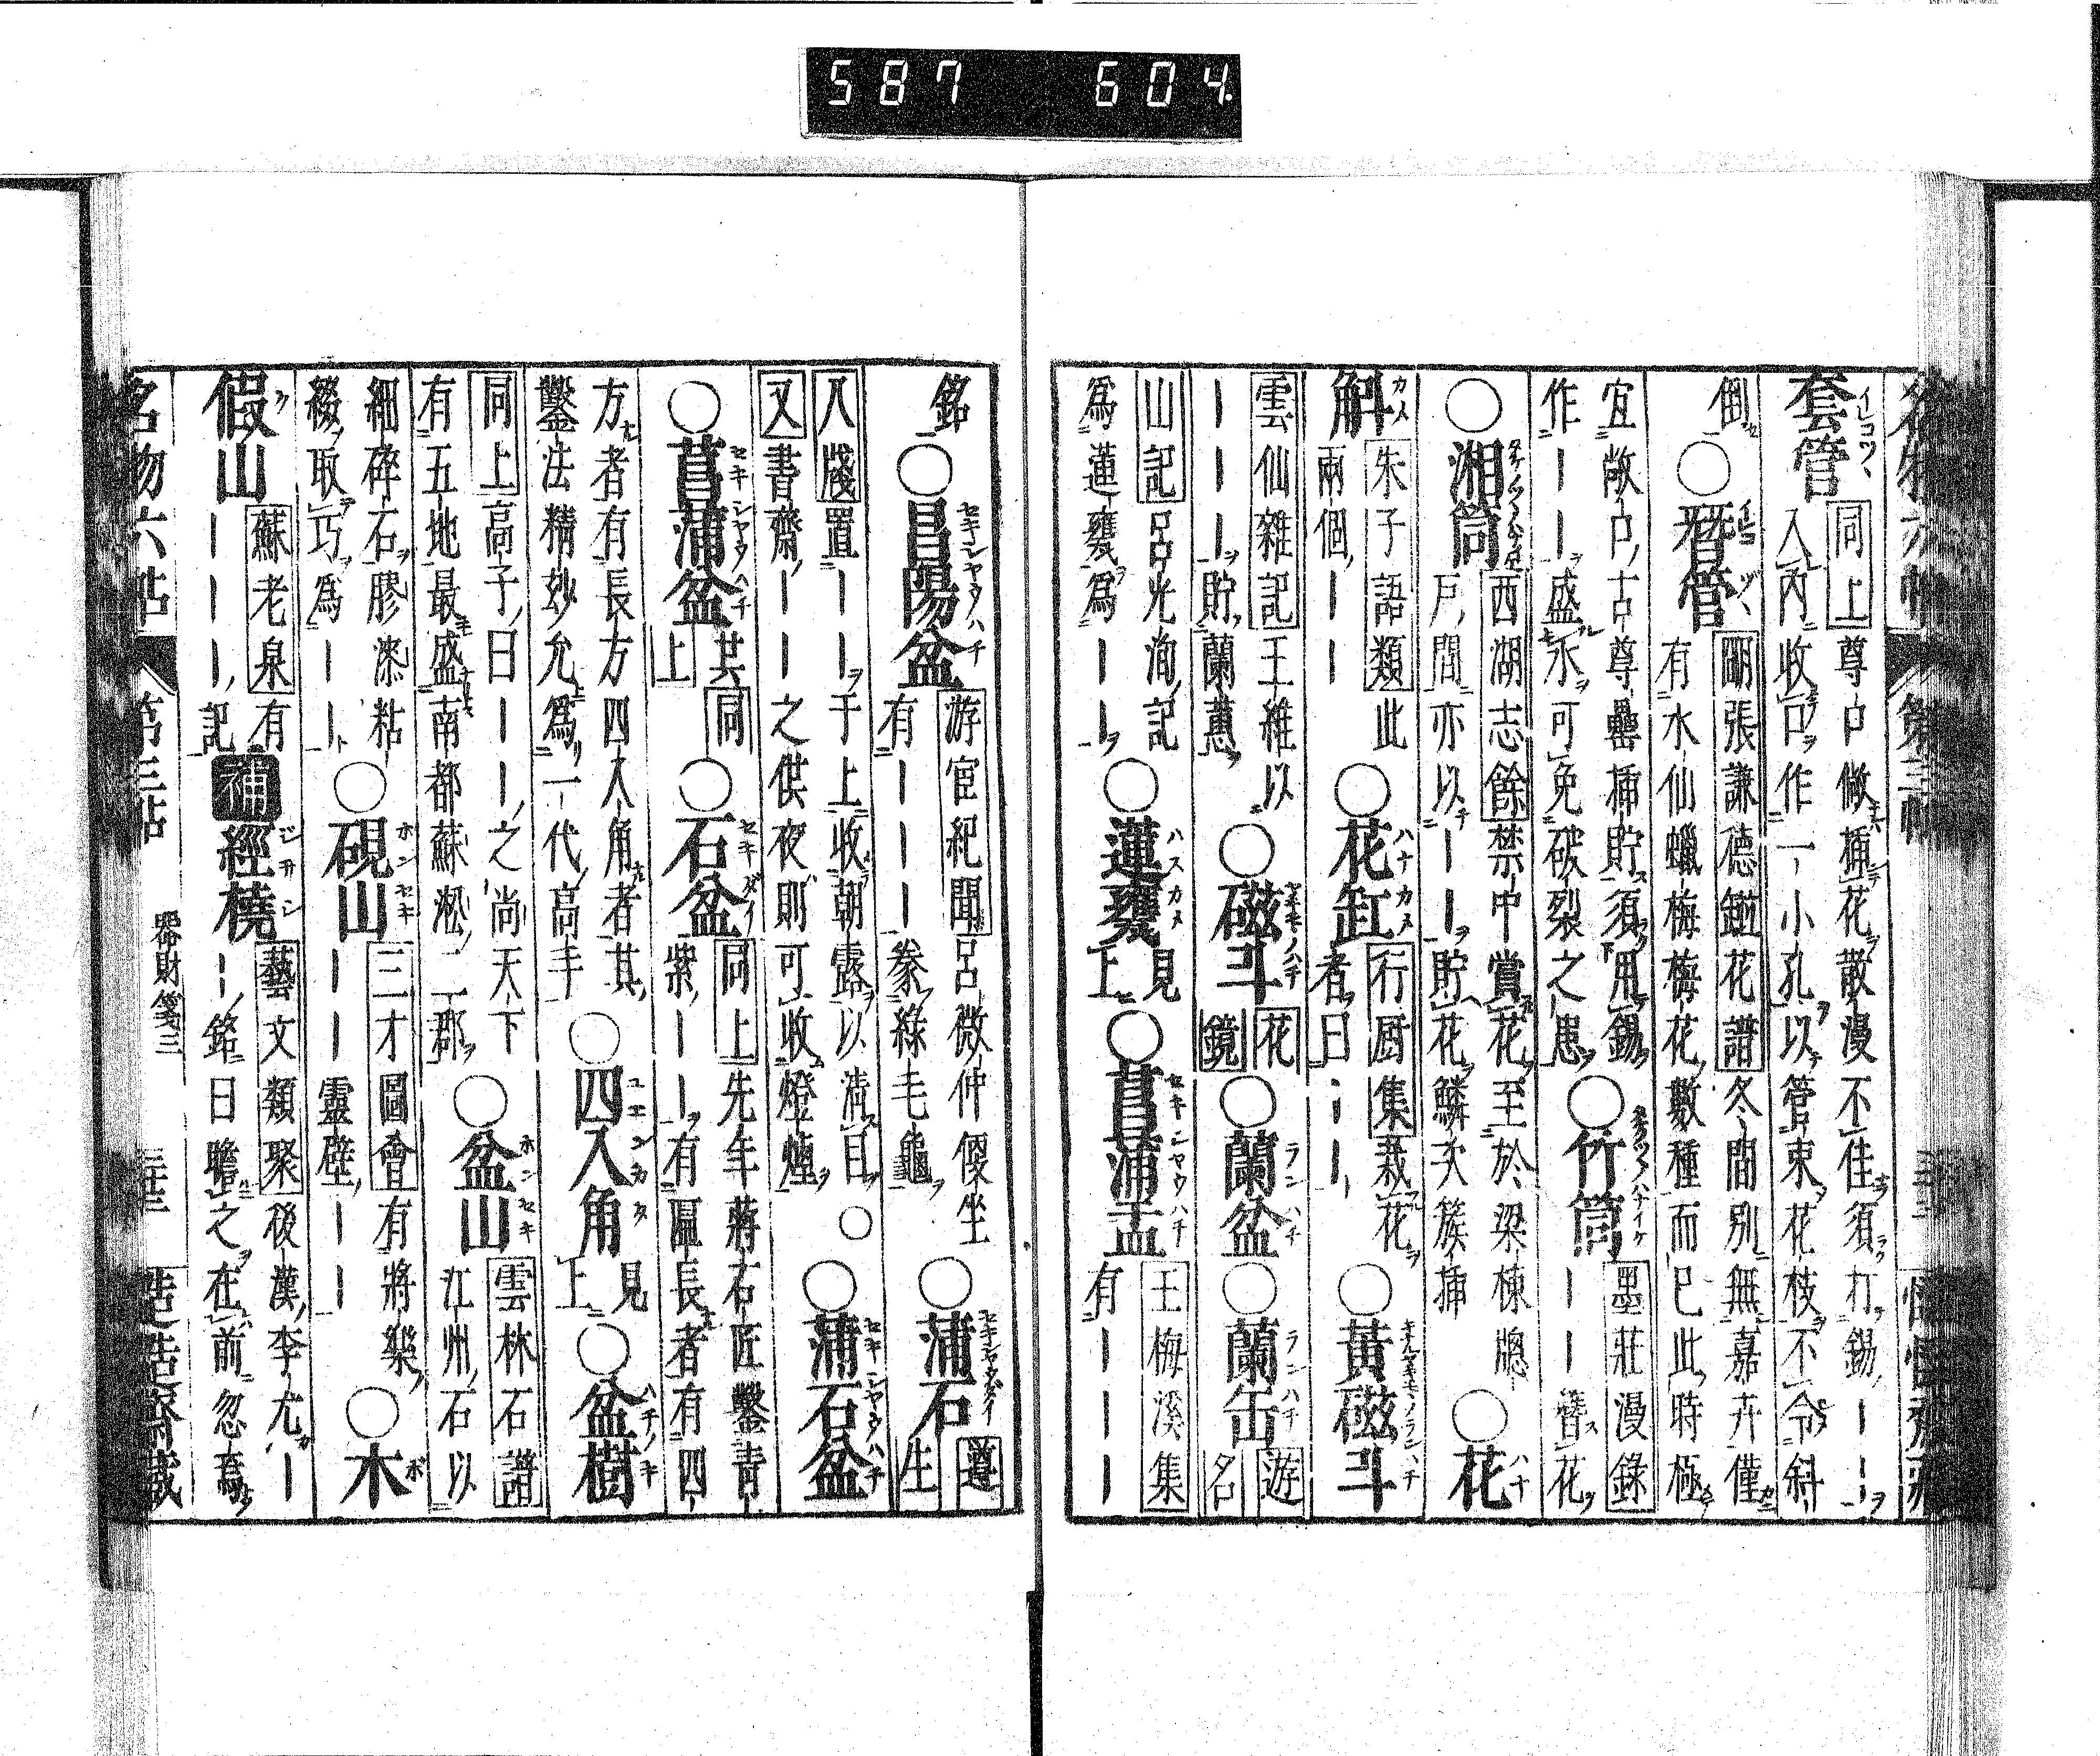 587 604
套管 同上 尊口倣插花散漫不佳須打錫ーーヲ
入内收口作一小孔以管束花枝不令斜
倒 ○ 暦管 張謙德缾花譜 冬間別無嘉卉僅
有水仙蠟梅梅花數種而已此時極
宜敞口古尊罍插貯須用錫
作ーー盛水可免破裂之患 ○竹筒 墨莊漫錄 ーー替花
○湘筒 西湖志餘 禁中賞花至於梁棟牕
戸間亦以ーー貯花鱗次簇插 ○花
斛 朱子語類 此
兩個ーー ○花缸 行厨集 栽花
者曰ーー ○黃磁斗
雲仙雜記 王維以
ーーー貯蘭蕙 ○磁斗 花鏡 ○蘭盆 ○蘭缶 遊名
山記 呂光洵記
爲蓮甕爲ーー ○蓮甕 見上 ○菖蒲盂 王梅溪集 有ーーー
銘 ○昌陽盆 游宦紀聞 呂微仲便坐
有ーーー豢綠毛龜 ○蒲石 遵生
八牋 置ーー于上收朝露以淸目○
又 書齋ーー之供夜則可收燈煙 ○蒲石盆
○菖蒲盆 其上同 ○石盆 同上 先年蔣石匠鑿靑
紫ーー有匾長者有四
方者有長方四入角者其
鑿法精妙允爲一代高手 ○四入角 見上 ○盆樹
同上 高子曰ーー之尚天下
有五地最盛南都蘇淞二郡 ○盆山 雲林石譜 江州石以
細碎石膠漆粘
綴取巧爲ーー ○硯山 三才圖會 有將樂
ーー靈壁ーー ○木
假山 蘇老泉 有
ーーー記 補 經橈 藝文類聚 後漢李尤ー
ー銘曰瞻之在前忽焉
名物六帖 第三帖 器財箋三